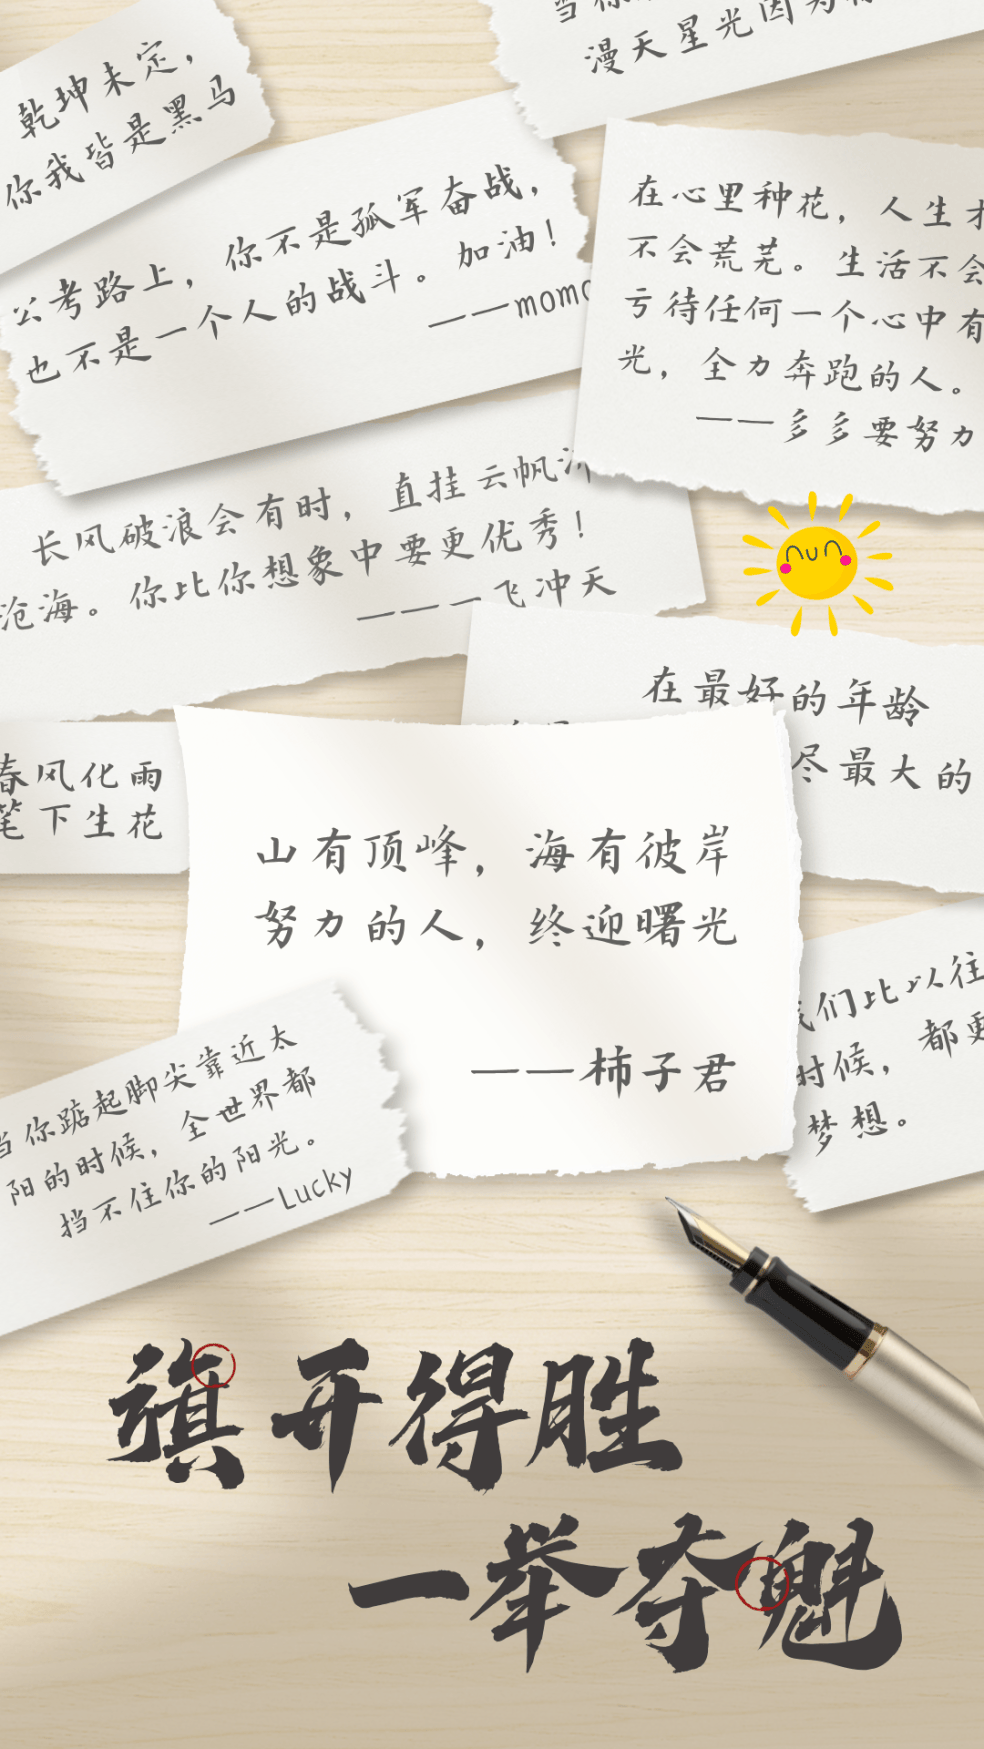 漫天星光因为
乾坤未定，
你我皆是黑马
公考路上，你不是孤军奋战，
也不是一个人的战斗。加油！
——momo
在心里种花，人生才
不会荒芜。生活不会
亏待任何一个心中有
光，全力奔跑的人。
——多多要努力
长风破浪会有时，直挂云帆济
沧海。你比你想象中要更优秀！
———飞冲天
在最好的年龄
尽最大的
春风化雨
笔下生花
山有顶峰，海有彼岸
努力的人，终迎曙光
——柿子君
我们比以往
时候，都更
梦想。
当你踮起脚尖靠近太
阳的时候，全世界都
挡不住你的阳光。
——Lucky
旗开得胜
一举夺魁